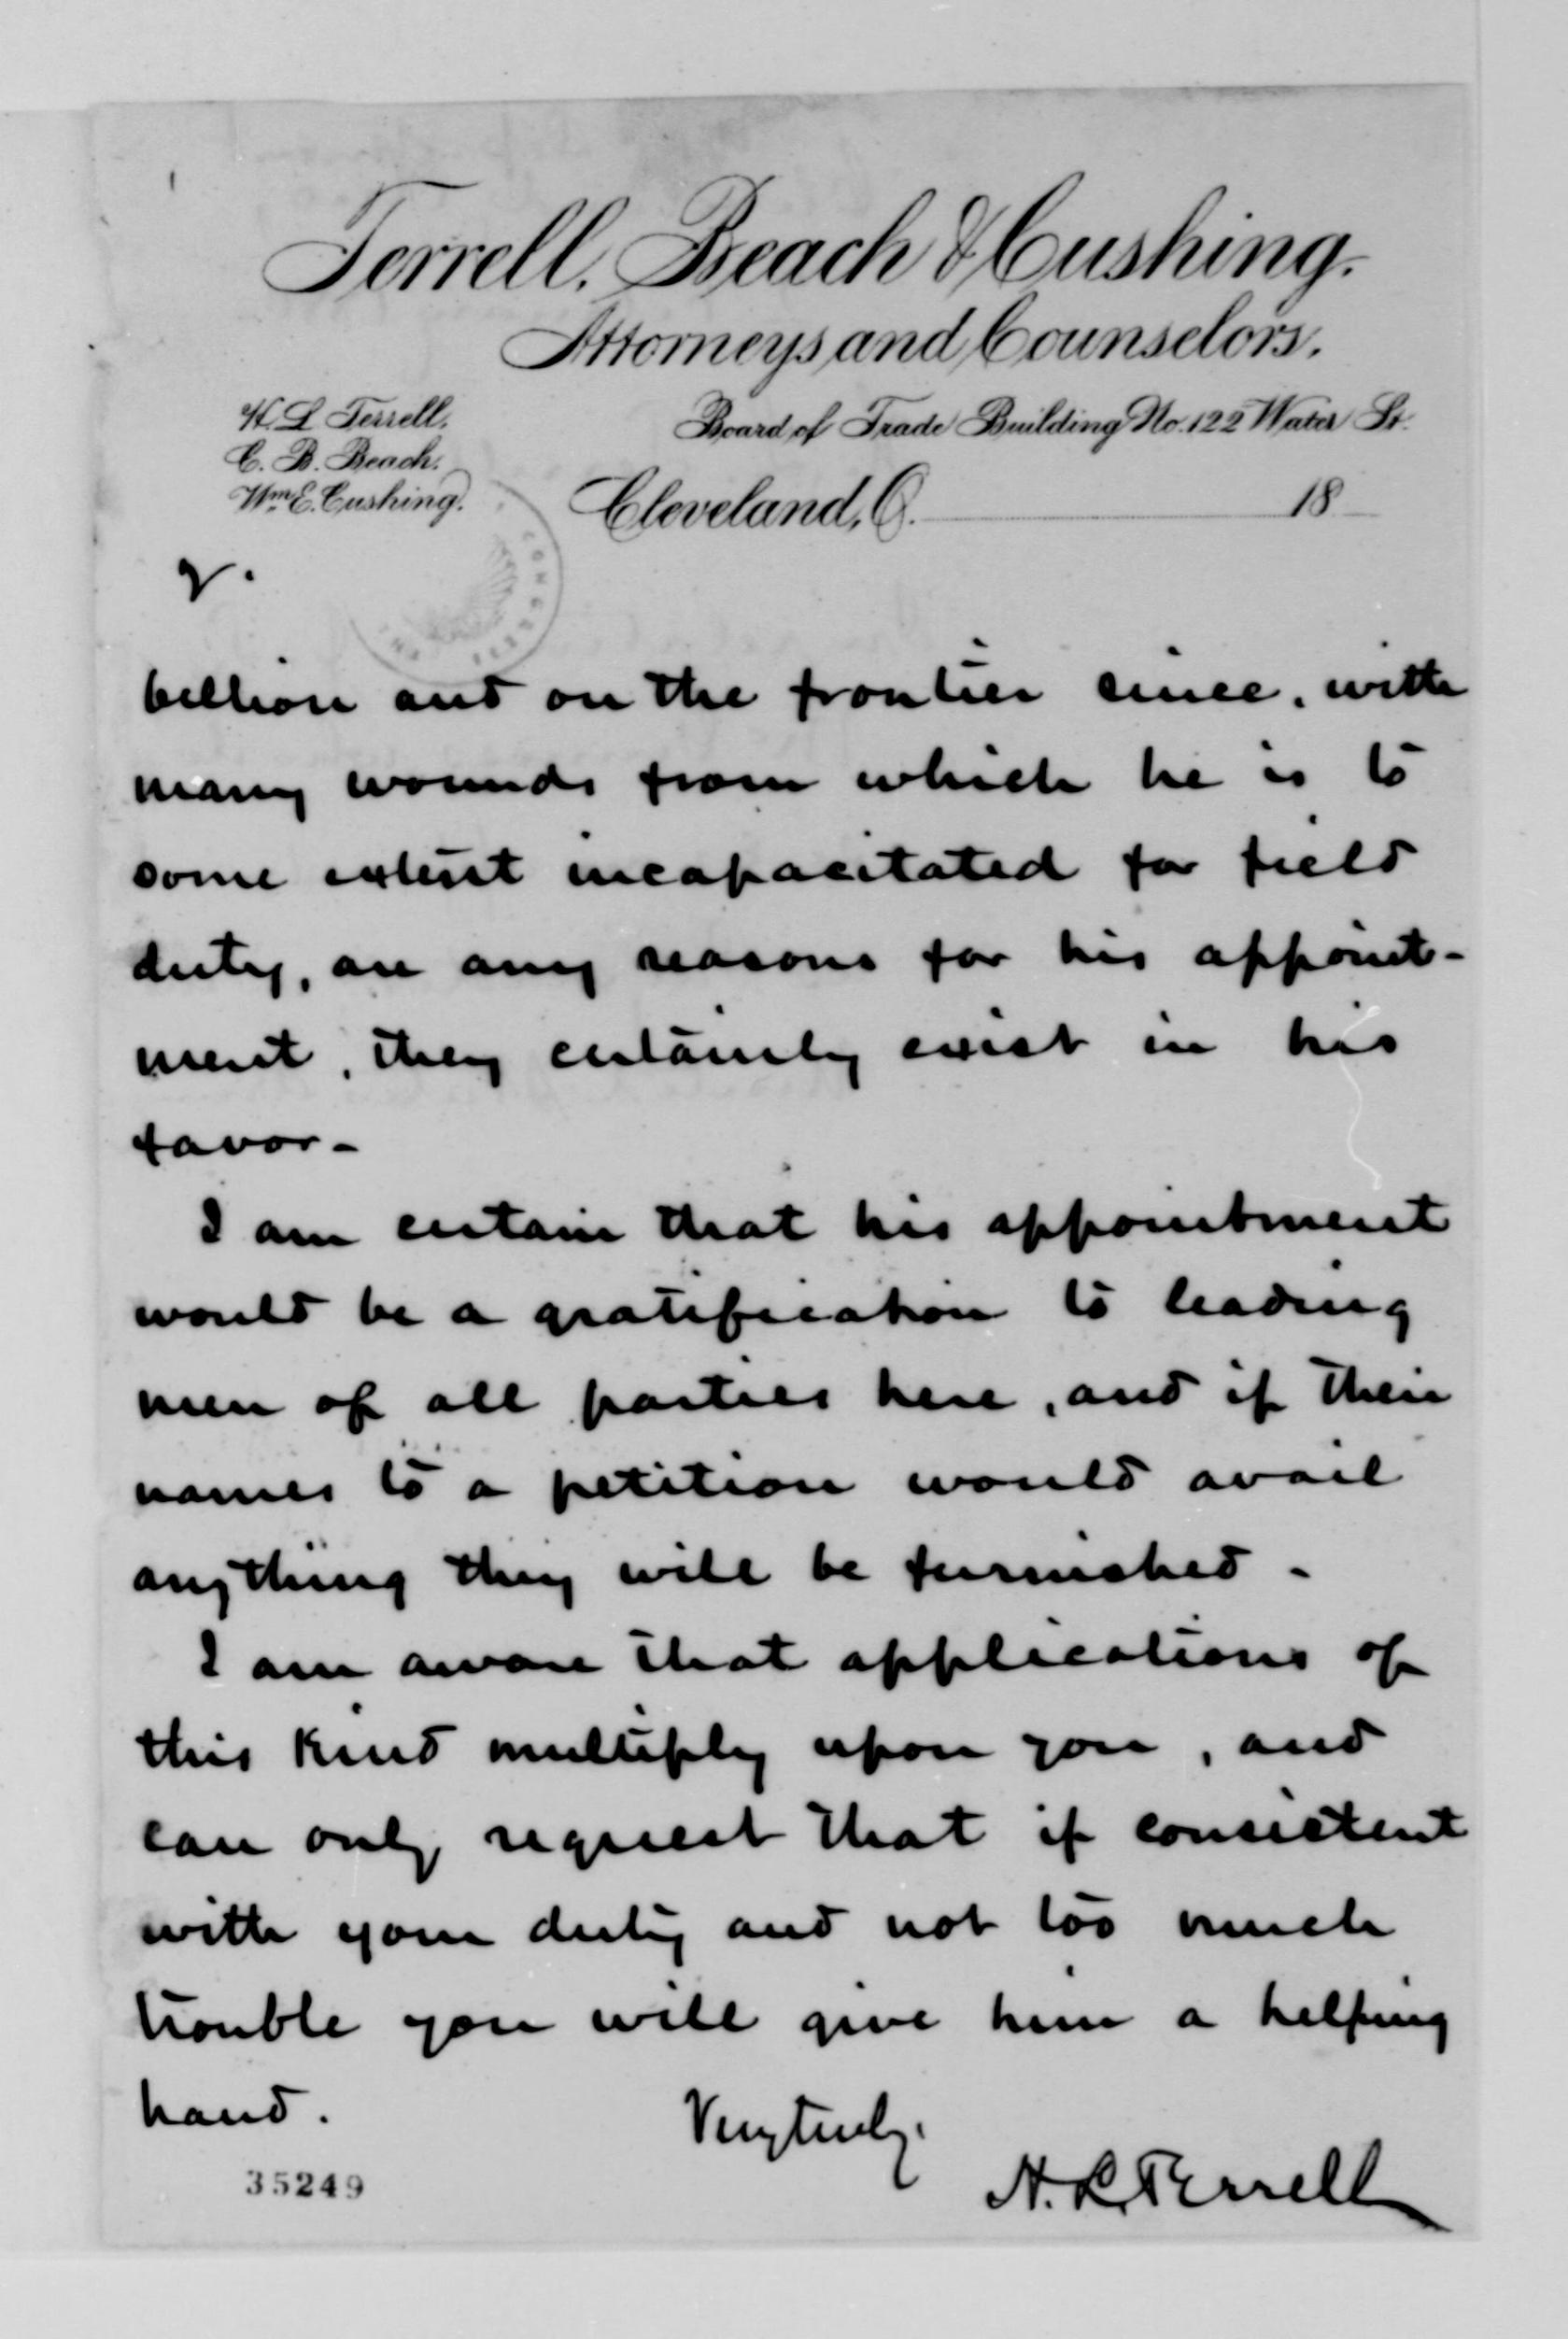 Terrell, Beach & Cushing.
Attorneys and Counselors.
H. L. Terrell.
C. B. Beach.
Wm. E. Cushing.
Board of Trade Building No. 122 Water St.
Cleveland, O. 18
2.
CONGRESS
bellion and on the frontier since, with
many wounds from which he is to
some extent incapacitated for field
duty, are any reasons for his appoint-
ment, they certainly exist in his
favor-
I am certain that his appointment
would be a gratification to leading
men of all parties here, and if their
names to a petition would avail
anything they will be furnished -
I am aware that applications of
this kind multiply upon you, and
can only request that if consistent
with your duty and not too much
trouble you will give him a helping
hand.
Very truly,
H. L. Terrell
35249